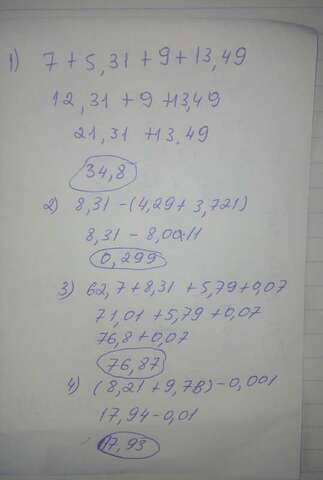 1) 7+5,31+9+13,49
12,31+9+13,49
21,31+13,49
34,8
2) 8,31-(4,29+3,721)
8,31-8,011
0,299
3) 62,7+8,31+5,79+0,07
71,01+5,79+0,07
76,8+0,07
76,87
4) (8,21+9,73)-0,001
17,94-0,01
17,93